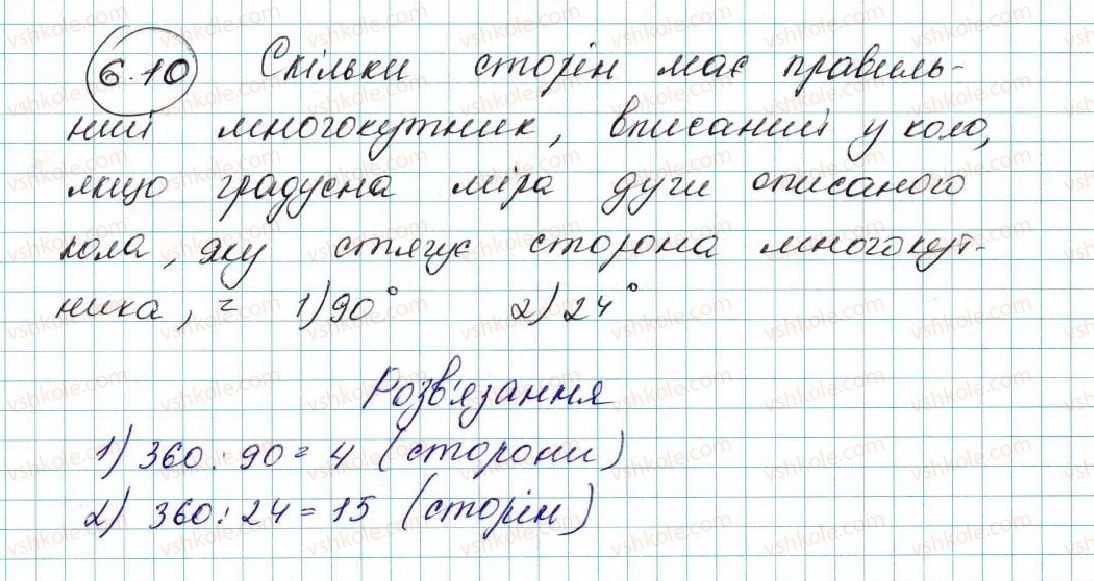 6.10 Скільки сторін має правиль-
ний многокутник, вписаний у коло,
якщо градусна міра дуги описаного
кола, яку стягує сторона многокут-
ника, = 1) 90° 2) 24°
Розв'язання
1) 360 : 90 = 4 (сторони)
2) 360 : 24 = 15 (сторін)